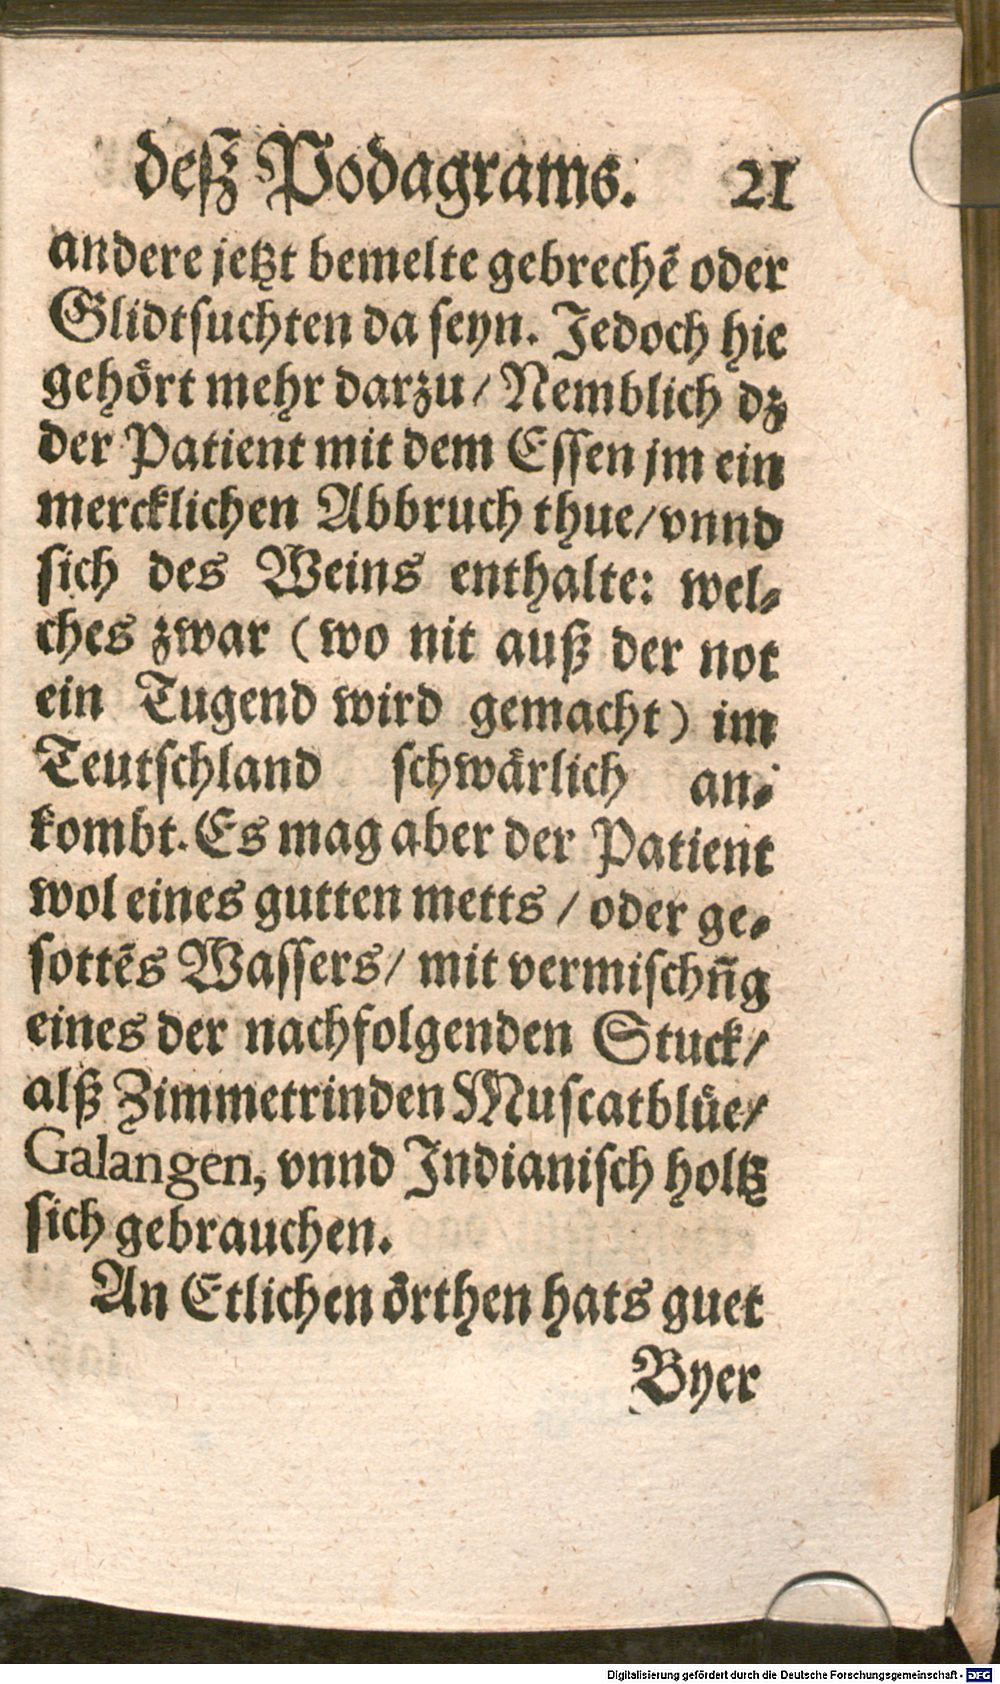 deſz Podagrams. 21
andere jetzt bemelte gebrechẽ oder
Glidtſuchten da ſeyn. Jedoch hie
gehört mehr darzu / Nemblich dz
der Patient mit dem Eſſen jm ein
mercklichen Abbruch thue / vnnd
ſich des Weins enthalte: wel⸗
ches zwar (wo nit auß der not
ein Tugend wird gemacht) im
Teutſchland ſchwärlich an⸗
kombt. Es mag aber der Patient
wol eines gutten metts / oder ge⸗
ſottẽs Waſſers / mit vermiſchũg
eines der nachfolgenden Stuck /
alß Zimmetrinden Muſcatblüe /
Galangen, vnnd Indianiſch holtz
ſich gebrauchen.
An Etlichen örthen hats guet
Byer
Digitalisierung gefördert durch die Deutsche Forschungsgemeinschaft - DFG